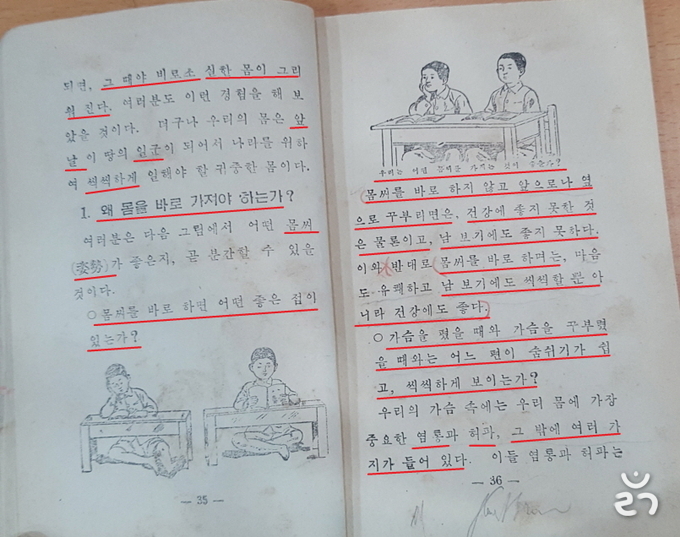 되면, 그 때야 비로소 실한 몸이 그리
워 진다. 여러분도 이런 경험을 해 보
았을 것이다. 더구나 우리의 몸은 앞
날 이 땅의 일군이 되어서 나라를 위하
여 씩씩하게 일해야 할 귀중한 몸이다.
1. 왜 몸을 바로 가져야 하는가?
여러분은 다음 그림에서 어떤 몸씨
(姿勢)가 좋은지, 곧 분간할 수 있을
것이다.
○몸씨를 바로 하면 어떤 좋은 점이
있는가?
— 35 —
우리는 어떤 몸씨를 가지는 것이 좋은가?
몸씨를 바로 하지 않고 앞으로나 옆
으로 꾸부리면은, 건강에 좋지 못한 것
은 물론이고, 남 보기에도 좋지 못하다.
이와 반대로 몸씨를 바로 하며는, 마음
도 유쾌하고 남 보기에도 씩씩할 뿐 아
니라 건강에도 좋다.
○가슴을 폈을 때와 가슴을 꾸부렸
을 때와는 어느 편이 숨쉬기가 쉽
고, 씩씩하게 보이는가?
우리의 가슴 속에는 우리 몸에 가장
중요한 염통과 허파, 그 밖에 여러 가
지가 들어 있다. 이들 염통과 허파는
— 36 —